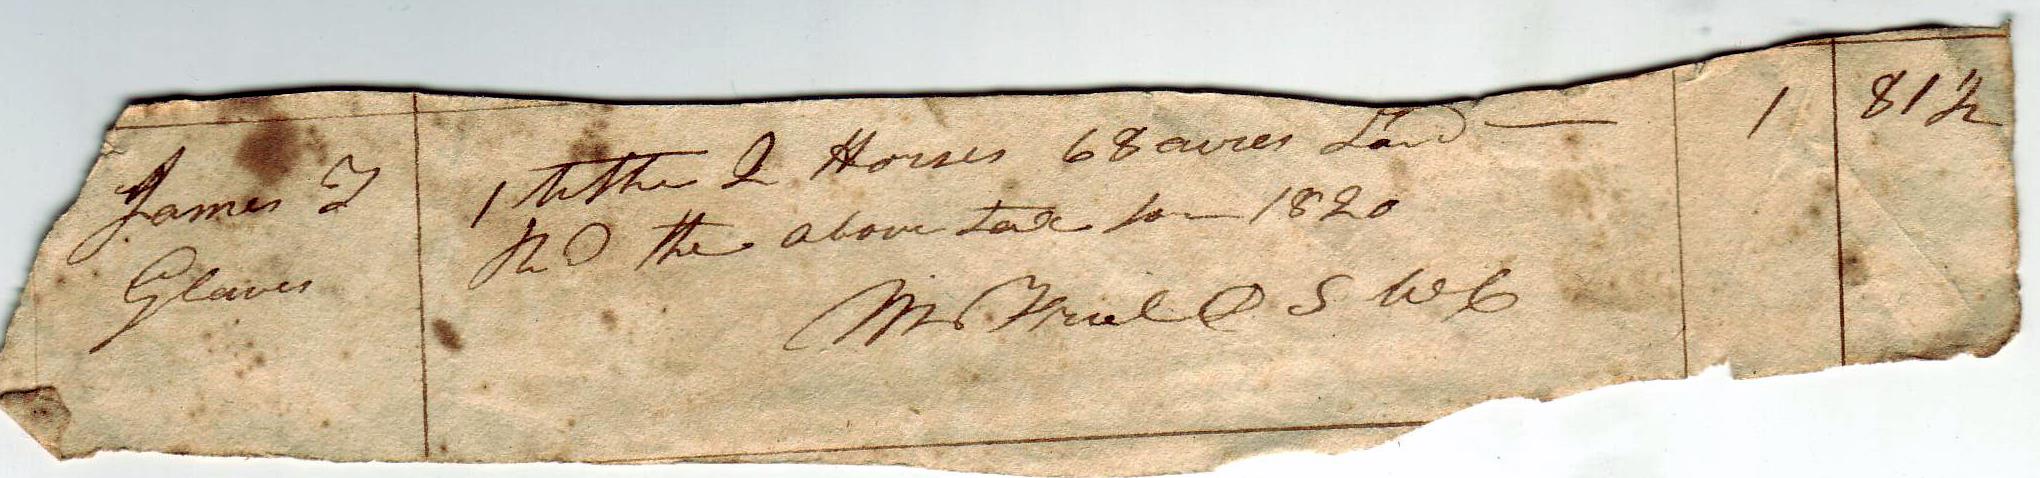 James T 1 tithe 2 Horses 68 acres Land — 1 81 ½
Glaves pd the above tax for 1820
M. Friel D S W C